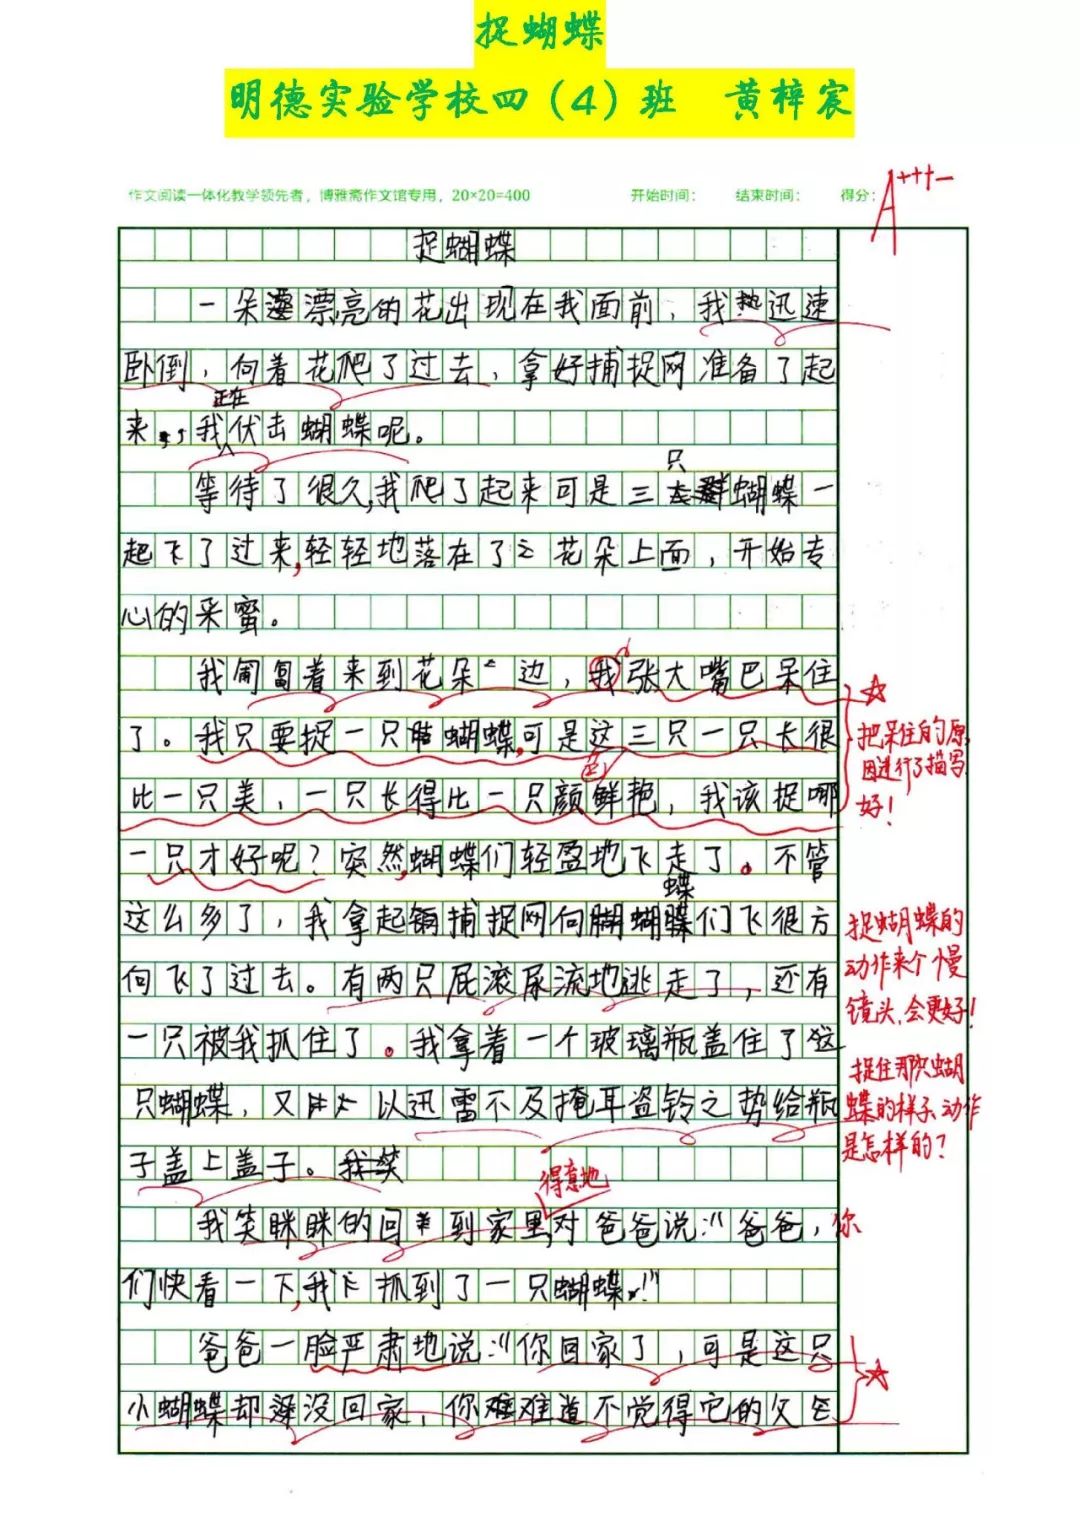 捉蝴蝶
明德实验学校四（4）班 黄梓宸
作文阅读一体化教学领先者，博雅斋作文馆专用，20×20=400 开始时间： 结束时间： 得分：
A+++-
捉蝴蝶
一朵漂亮的花出现在我面前，我迅速
卧倒，向着花爬了过去，拿好捕捉网准备了起
正在
来，我伏击蝴蝶呢。
只
等待了很久，我爬了起来可是三蝴蝶一
起飞了过来，轻轻地落在了花朵上面，开始专
心的采蜜。
我匍匐着来到花朵边，我张大嘴巴呆住
了。我只要捉一只蝴蝶，可是这三只一只长很
比一只美，一只长得比一只颜鲜艳，我该捉哪
一只才好呢？突然，蝴蝶们轻盈地飞走了。不管
蝶
这么多了，我拿起捕捉网向蝴们飞很方
向飞了过去。有两只屁滚尿流地逃走了，还有
一只被我抓住了。我拿着一个玻璃瓶盖住了这
只蝴蝶，又以迅雷不及掩耳盗铃之势给瓶
子盖上盖子。我笑
得意地
我笑眯眯的回到家里，对爸爸说：“爸爸，你
们快看一下，我抓到了一只蝴蝶！”
爸爸一脸严肃地说：“你回家了，可是这只
小蝴蝶却没回家，你难道不觉得它的父母
把呆住的原
因进行了描写，
好！
捉蝴蝶的
动作来个慢
镜头，会更好！
捉住那只蝴
蝶的样子、动作
是怎样的？